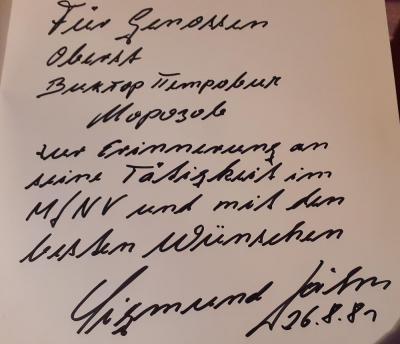 Für Genossen
Oberst
Виктор Петрович
Морозов
zur Erinnerung an
seine Tätigkeit im
MfNV und mit den
besten Wünschen
Sigmund Jähn
26.8.81